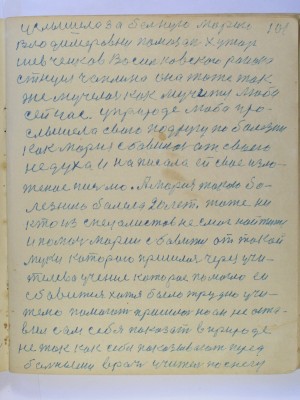 услышела за больную Марию 101
Владимеровну помощде Хутор
Шевченков Васильковского района
станция Чеплина она тоже так
же мучелася как мучится Люба
сейчас. Уприроде Люба про-
слышела свою подругу по болезни
как Мария збавилася от своего
недуха и написала ей свое изло-
жение письмо. А Мария такою бо-
лезнию болела 20 лет. тоже ни
кто из спецалистов не смог найти
и помоч Марии збавится от такой
муки которою пришлося через учи-
теля учение которое помогло ей
збавится хотя было трудно учи-
телю помогать пришлося но он не оста-
вил сам себя показать в природе
не так как себя показывают перед
больными врачи учитель по снегу